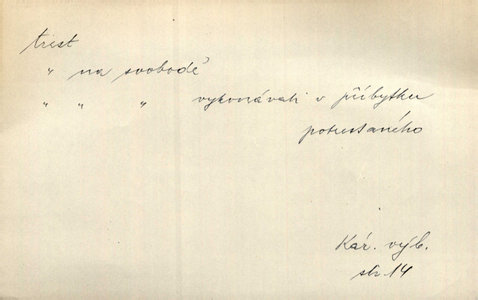 trest
" na svobodě
" " " vykonávati v příbytku
potrestaného
Kár. výb.
str. 14